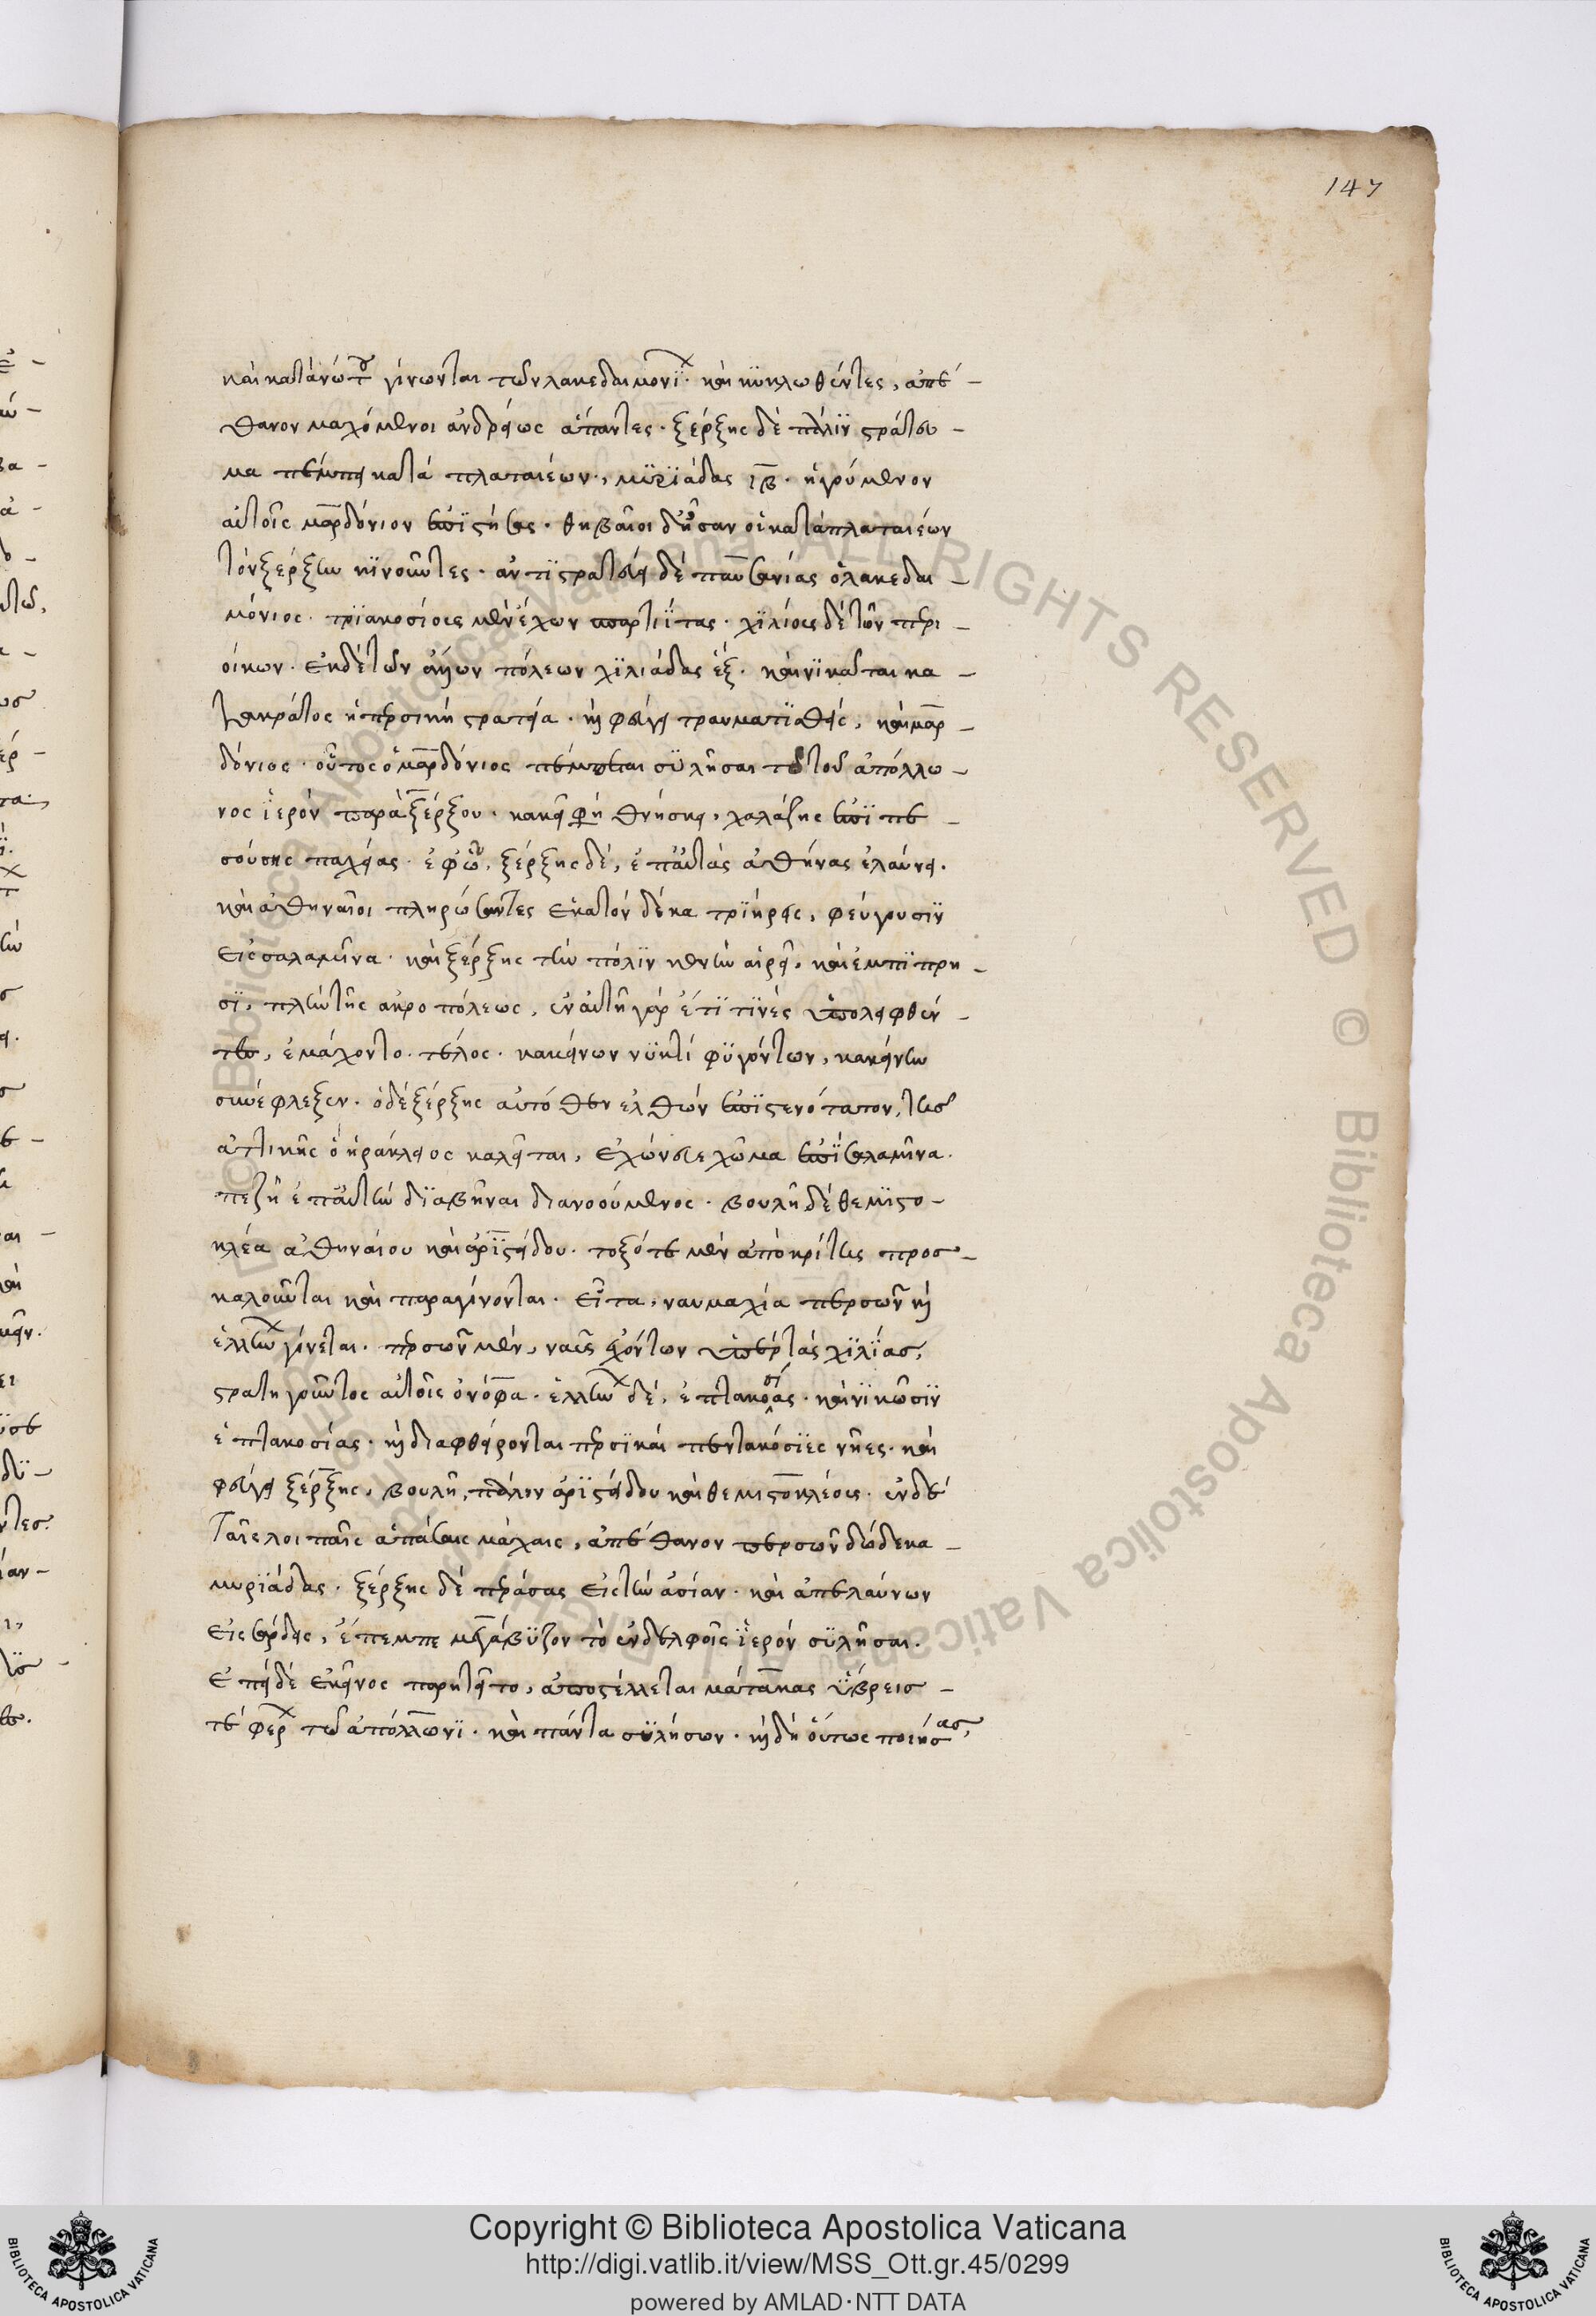 147
καὶ κατὰ νώτου γίνωνται τῶν λακεδαιμονίων. καὶ κϋκλωθέντες, ἀπέ-
θανον μαχόμενοι ἀνδρείως ἅπαντες. ξέρξης δὲ πάλϊν στράτευ-
μα πέμπει κατὰ πλαταιέων, μϋρϊάδας ιβ. ἡγούμενον
αὐτοῖς μαρδόνιον ἐπϊστήσας. θηβαῖοι δ' ἦσαν οἱ κατὰ πλαταιέων
τὸν ξέρξην κϊνοῦντες. ἀντϊστρατεύει δὲ παυσανίας ὁ λακεδαι-
μόνιος. τρϊακοσίους μὲν ἔχων σπαρτιΐτας. χϊλίους δὲ τῶν περι-
οίκων. ἐκ δὲ τῶν ἄλλων πόλεων χϊλιάδας ἓξ. καὶ νϊκᾶται κα-
τακράτος ἡ περσικὴ στρατεία. καὶ φεύγει τραυματϊσθεὶς, καὶ μαρ-
δόνιος. οὗτος ὁ μαρδόνιος πέμπεται σϋλῆσαι τὸ τοῦ ἀπόλλω-
νος ἱερὸν παρὰ ξέρξου. κἀκεῖ φη θνήσκει, χαλάζης ἐπϊπε-
σούσης παχείας. ἐφ' ὧ, ξέρξης δὲ, ἐπ' αὐτὰς ἀθήνας ἐλαύνει.
καὶ ἀθηναῖοι πληρώσαντες ἑκατὸν δέκα τρϊήρεις, φεύγουσϊν
εἰς σαλαμῖνα. καὶ ξέρξης τὴν πόλϊν κενὴν αἱρεῖ, καὶ ἐμπϊπρη-
σϊ, πλὴν τῆς ἀκροπόλεως, ἐν αὐτῆ γὰρ ἔτϊ τϊνὲς ὑπολειφθέν-
τες, ἐμάχοντο. τέλος. κἀκείνων νϋκτὶ φϋγόντων, κἀκείνην
συνέφλεξεν. ὁ δὲ ξέρξης αὐτόθεν ἐλθὼν ἐπϊ στενότατον, τῆς
ἀττικῆς ὃ ἡράκλειος καλεῖται, ἐχώνευε χῶμα ἐπϊ σαλαμῖνα.
πεζῆ ἐπ' αὐτὴν δϊαβῆναι διανοούμενος. βουλῆ δὲ θεμϊστο-
κλέα ἀθηναίου καὶ ἀρϊστείδου. τοξόται μὲν ἀπὸ κρίτης προσ-
καλοῦνται καὶ παραγίνονται. εἶτα, ναυμαχία περσῶν καὶ
ἑλλήνων γίνεται. περσῶν μὲν, ναῦς ἐχόντων ὑπὲρ τὰς χϊλΐας,
στρατηγοῦντος αὐτοῖς ὀνόφα. ἑλλήνων δὲ, ἑπτακοσίας. καὶ νϊκῶσϊν
ἑπτακοσίας. καὶ διαφθείρονται περσϊκαὶ πεντακόσϊες νῆες. καὶ
φεύγει ξέρξης, βουλῆ, πάλιν ἀρϊστείδου καὶ θεμιστοκλέους. ἐν δὲ
ταῖς λοιπαῖς ἁπάσαις μάχαις, ἀπέθανον περσῶν δώδεκα-
μυρϊάδας. ξέρξης δὲ περάσας εἰς τὴν ἀσίαν. καὶ ἀπελαύνων
εἰς σάρδεις, ἔπεμπε μεγάβϋζον τὸ ἐν δελφοῖς ἱερὸν σϋλῆσαι.
ἐπεὶ δὲ ἐκεῖνος παρητεῖτο, ἀποστέλλεται ματάκας ὕβρεισ-
τε φέρων τῶ ἀπόλλωνϊ. καὶ πάντα σϋλήσων. καὶ δὴ οὕτως ποιήσας,
Copyright © Biblioteca Apostolica Vaticana
http://digi.vatlib.it/view/MSS_Ott.gr.45/0299
powered by AMLAD·NTT DATA